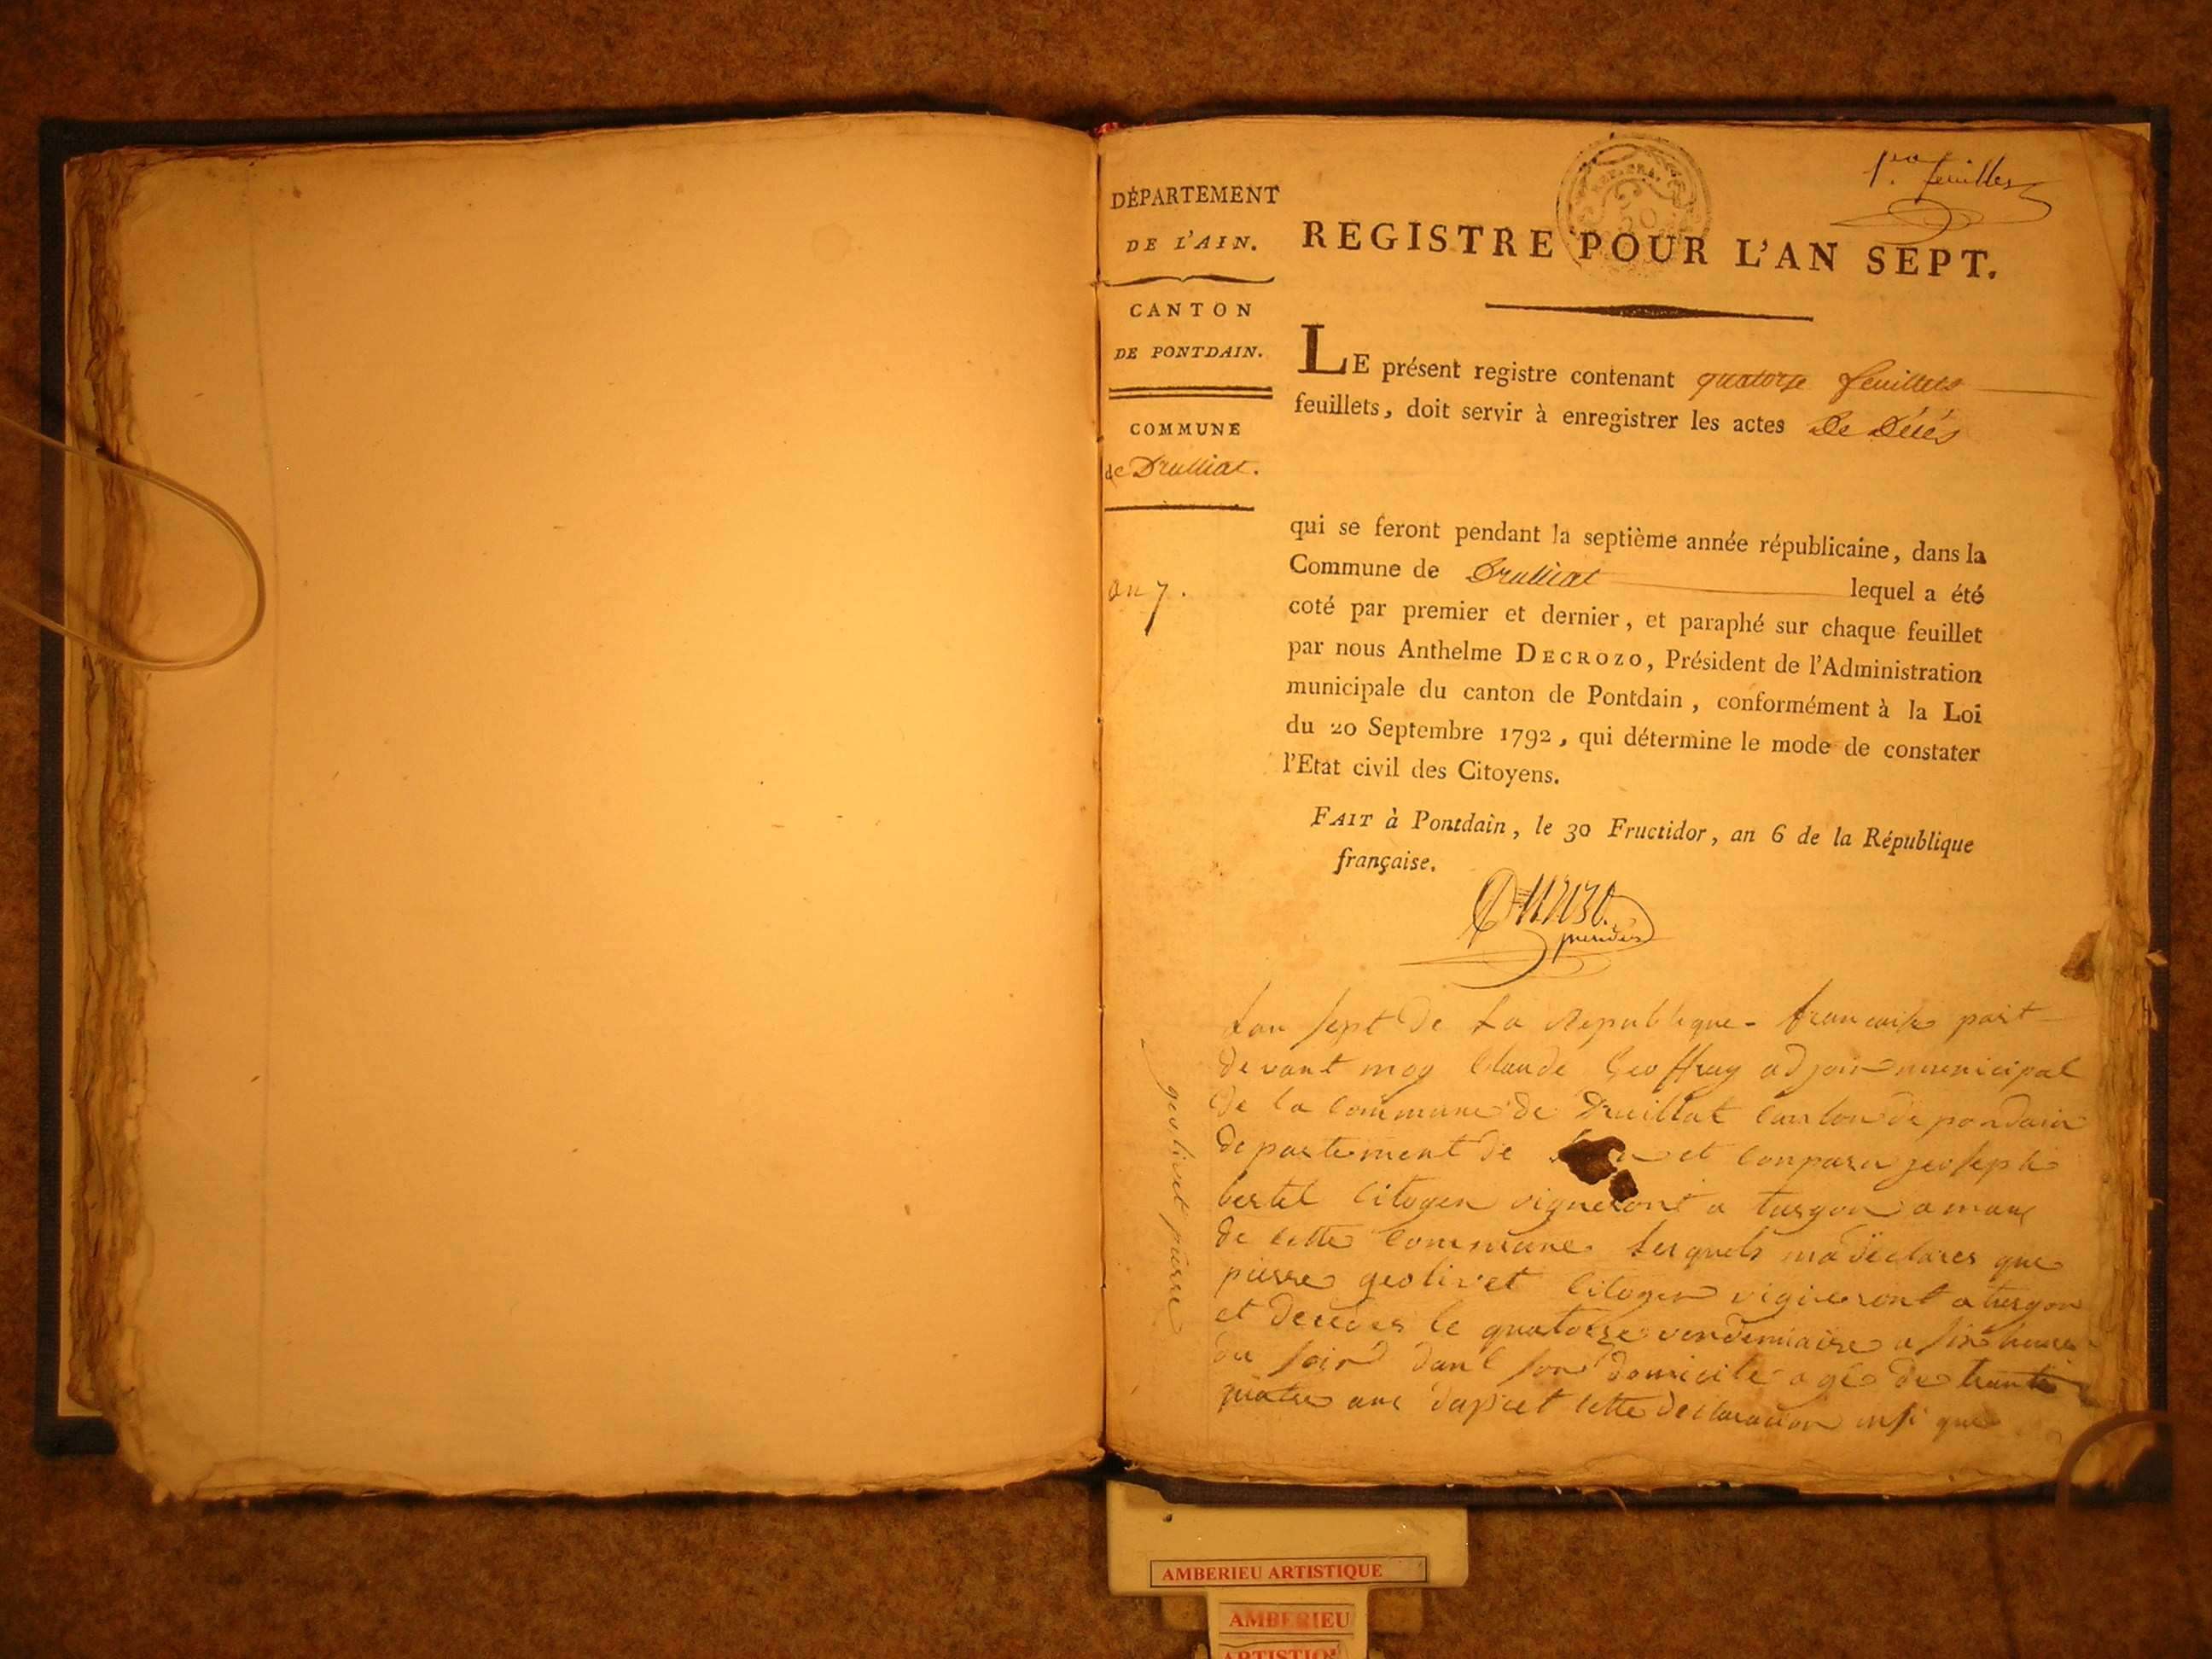 1.re feuilles
DÉPARTEMENT
DE L'AIN.
CANTON
DE PONTDAIN.
COMMUNE
de Druilliat.
an 7.
REGISTRE POUR L'AN SEPT.
REP. FRA.
50
LE présent registre contenant quatorze feuillets
feuillets, doit servir à enregistrer les actes De Décés
qui se feront pendant la septième année républicaine, dans la
Commune de Druilliat lequel a été
coté par premier et dernier, et paraphé sur chaque feuillet
par nous Anthelme DECROZO, Président de l'Administration
municipale du canton de Pontdain, conformément à la Loi
du 20 Septembre 1792, qui détermine le mode de constater
l'Etat civil des Citoyens.
FAIT à Pontdain, le 30 Fructidor, an 6 de la République
française.
geolivet pierre
Lan sept de La Republique - francaise part
devant moy Claude Geoffray adjoin municipal
de la commune de Druillat canton de pondain
departement de et conparu joseph
bertel Citoyen vigneront a turgon
de cette Commune Lesquels ma déclares que
pierre geolivet Citoyen vigneront a turgon
et decedes le quatorze vendemiaire a six heures
du soir dans son domicile agé de trante
quatre ans cette declaration
AMBERIEU ARTISTIQUE
AMBERIEU
ARTISTIQU